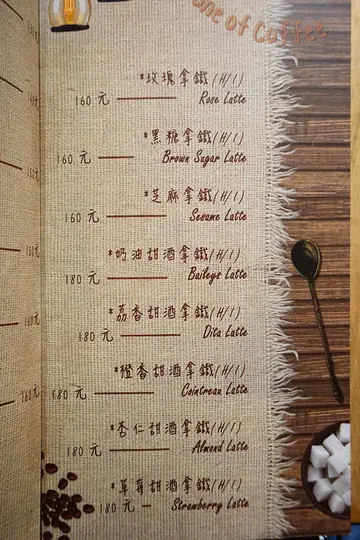 one of Coffee
*玫瑰拿鐵(H/I)
160 元 Rose Latte
*黑糖拿鐵(H/I)
160 元 Brown Sugar Latte
*芝麻拿鐵(H/I)
160 元 Sesame Latte
*奶油甜酒拿鐵(H/I)
180 元 Baileys Latte
*荔香甜酒拿鐵(H/I)
180 元 Dita Latte
*橙香甜酒拿鐵(H/I)
180 元 Cointreau Latte
*杏仁甜酒拿鐵(H/I)
180 元 Almond Latte
*草莓甜酒拿鐵(H/I)
180 元 Strawberry Latte